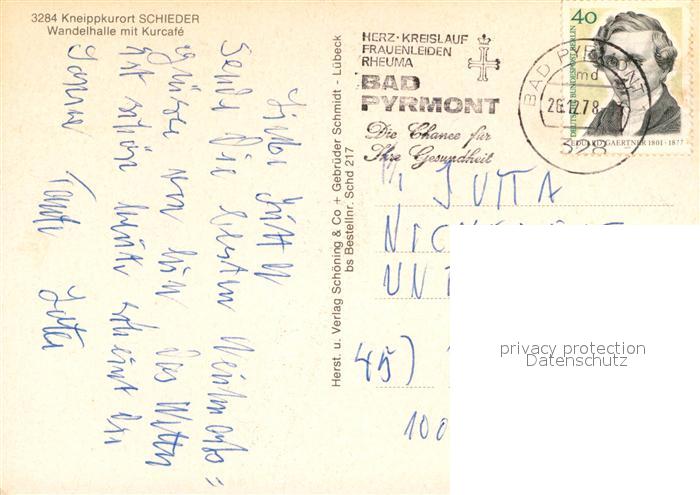 3284 Kneippkurort SCHIEDER
Wandelhalle mit Kurcafé
Liebe Jutta
Sende Dir die besten Weihnachts=
grüße von hier Das Wetter
ist schön heute scheint die
Sonne
Tante
Herst. u. Verlag Schöning & Co + Gebrüder Schmidt - Lübeck
bs Bestellnr. Schd 217
HERZ-KREISLAUF
FRAUENLEIDEN
RHEUMA
BAD
PYRMONT
Die Chance für
Ihre Gesundheit
BAD PYRMONT 1
md
26.12.78
328
40
DEUTSCHE BUNDESPOST BERLIN
EDUARD GAERTNER 1801-1877
JUTTA
UNT
45)
100
privacy protection
Datenschutz